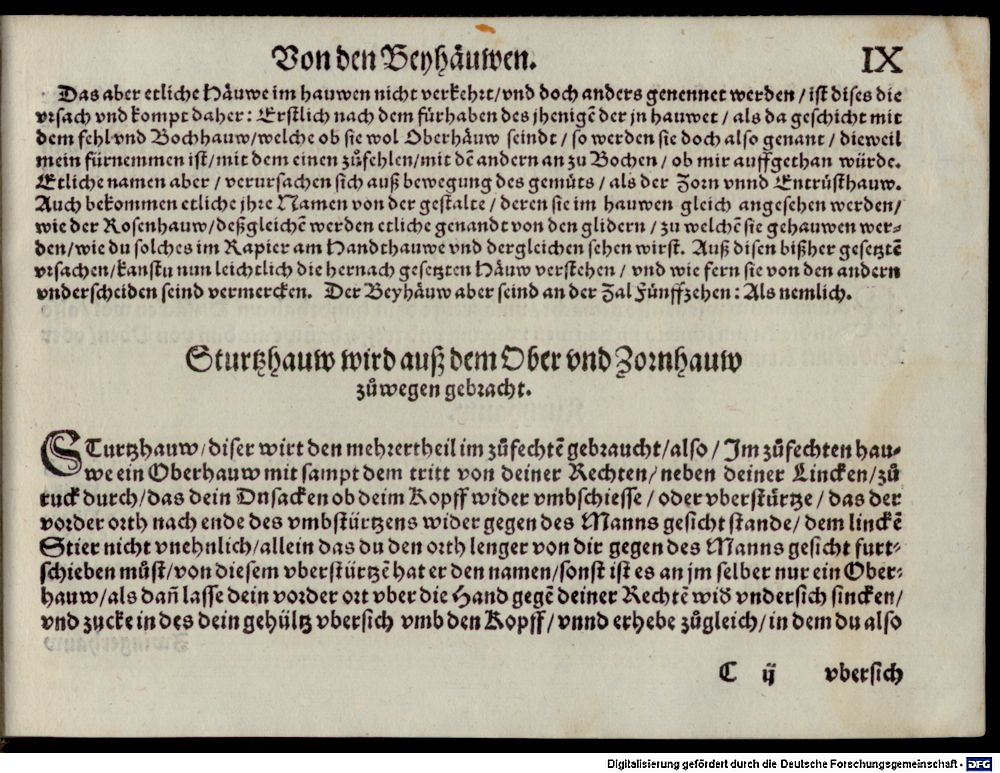 Von den Beyhäuwen. IX
Das aber etliche Häuwe im hauwen nicht verkehrt/vnd doch anders genennet werden/ist dises die
vrsach vnd kompt daher: Erstlich nach dem fürhaben des jhenigē der jn hauwet/als da geschicht mit
dem fehl vnd Bochhauw/welche ob sie wol Oberhäuw seindt/so werden sie doch also genant/dieweil
mein fürnemmen ist/mit dem einen zůfehlen/mit dē andern an zu Bochen/ob mir auffgethan würde.
Etliche namen aber/verursachen sich auß bewegung des gemüts/als der Zorn vnnd Entrüsthauw.
Auch bekommen etliche jhre Namen von der gestalte/deren sie im hauwen gleich angesehen werden/
wie der Rosenhauw/deßgleichē werden etliche genandt von den glidern/zu welchē sie gehauwen wer-
den/wie du solches im Rapier am Handthauwe vnd dergleichen sehen wirst. Auß disen bißher gesetztē
vrsachen/kanstu nun leichtlich die hernach gesetzten Häuw verstehen/vnd wie fern sie von den andern
vnderscheiden seind vermercken. Der Beyhäuw aber seind an der Zal Fünffzehen: Als nemlich.
Sturtzhauw wird auß dem Ober vnd Zornhauw
zůwegen gebracht.
STurtzhauw/diser wirt den mehrertheil im zůfechtē gebraucht/also/Im zůfechten hau-
we ein Oberhauw mit sampt dem tritt von deiner Rechten/neben deiner Lincken/zů
ruck durch/das dein Dusacken ob deim Kopff wider vmbschiesse/oder vberstürtze/das der
vorder orth nach ende des vmbstürtzens wider gegen des Manns gesicht stande/dem linckē
Stier nicht vnehnlich/allein das du den orth lenger von dir gegen des Manns gesicht furt-
schieben můst/von diesem vberstürtzē hat er den namen/sonst ist es an jm selber nur ein Ober-
hauw/als dañ lasse dein vorder ort vber die Hand gegē deiner Rechtē wið vndersich sincken/
vnd zucke in des dein gehültz vbersich vmb den Kopff/vnnd erhebe zůgleich/in dem du also
C ij vbersich
Digitalisierung gefördert durch die Deutsche Forschungsgemeinschaft - DFG